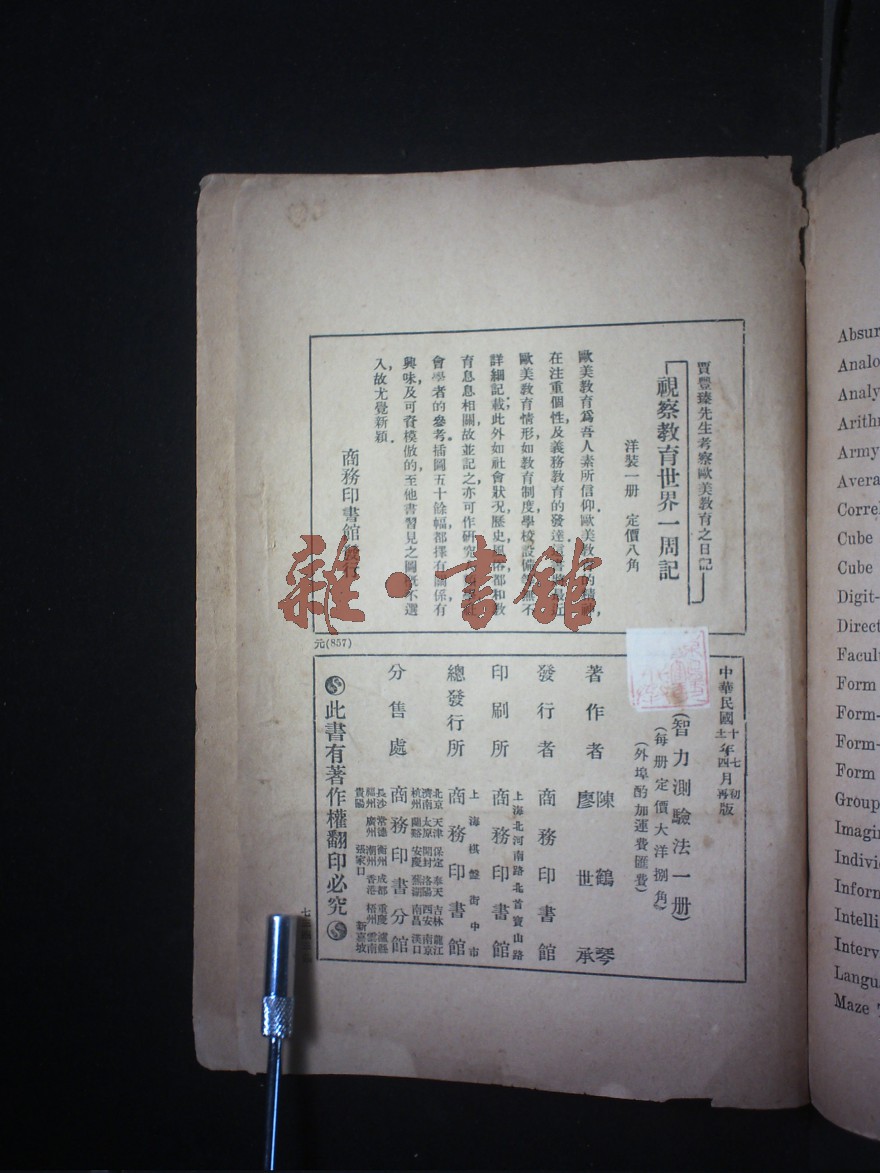 賈豐臻先生考察歐美教育之日記
視察教育世界一周記
洋裝一册 定價八角
歐美教育爲吾人素所信仰歐美教育的精神,
在注重個性,及義務教育的發達
歐美教育情形如教育制度學校設備
詳細記載,此外如社會狀况,歷史風俗都和教
育息息相關,故並記之,亦可作研究
會學者的參考。插圖五十餘幅,都擇有關係有
興味及可資模倣的,至他書習見之圖概不選
入,故尤覺新穎.
商務印書館發行
元(857)
中華民國
年四月再版
(智力測驗法一册)
(每册定價大洋捌角)
(外埠酌加運費匯費)
著作者 陳鶴琴
廖世承
發行者 商務印書館
上海北河南路北首寶山路
印刷所 商務印書館
上海棋盤街中市
總發行所 商務印書館
北京 天津 保定 奉天 吉林 龍江
濟南 太原 開封 洛陽 西安 南京
杭州 蘭谿 安慶 蕪湖 南昌 漢口
分售處 商務印書分館
長沙 常德 衡州 成都 重慶 瀘縣
福州 廣州 潮州 香港 梧州 雲南
貴陽 張家口 新嘉坡
此書有著作權翻印必究
雜·書館
Absur
Analo
Analy
Arith
Army
Avera
Correl
Cube
Cube
Digit-
Direct
Facul
Form
Form-
Form-
Form
Group
Imagi
Indivi
Inforn
Intelli
Interv
Langu
Maze